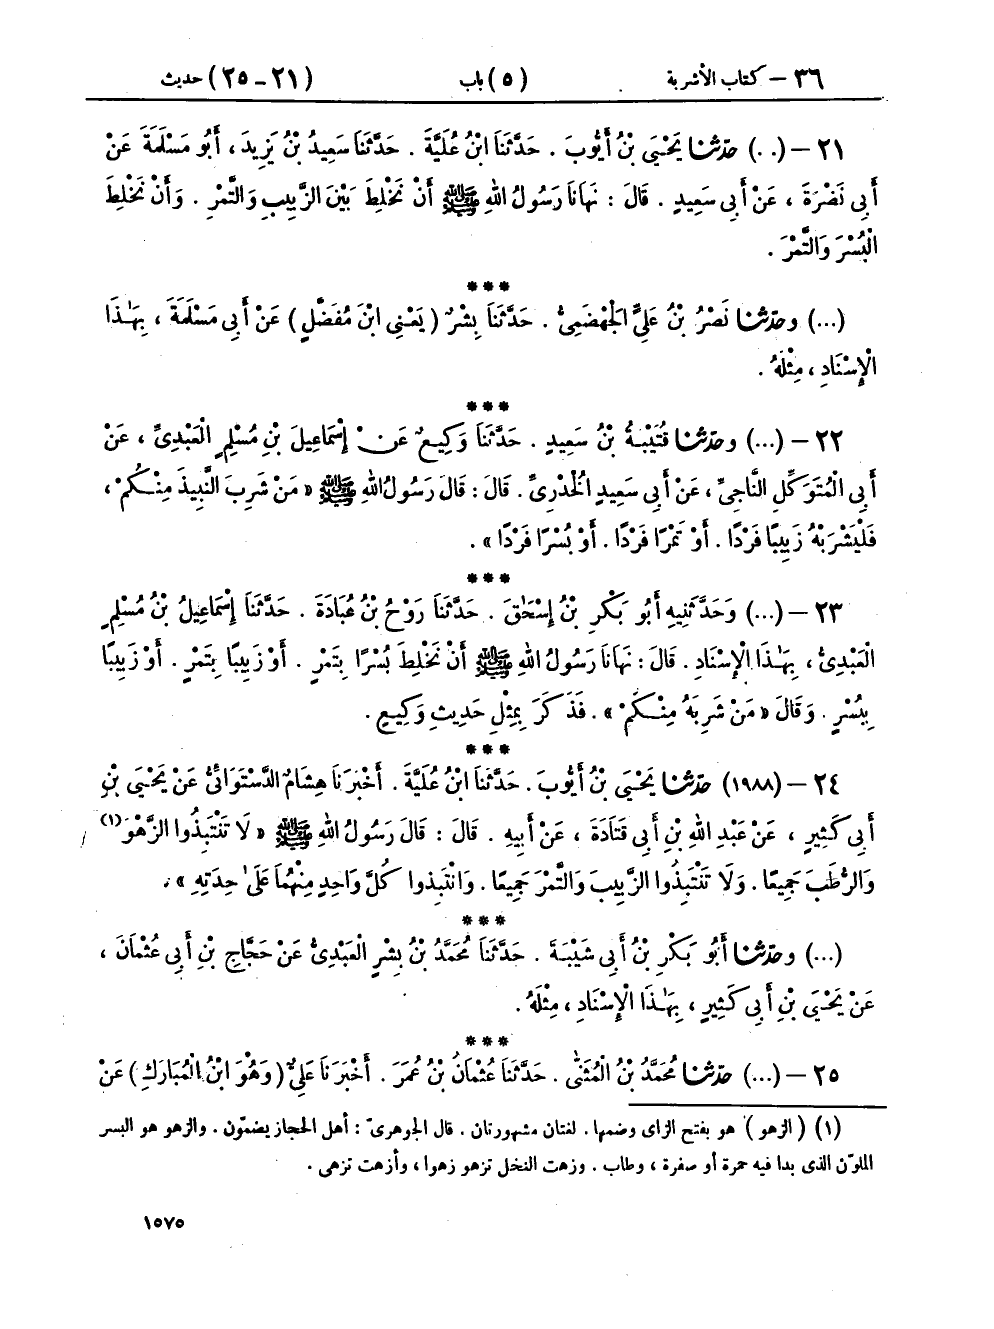 ٣٦ – كتاب الأشربة (٥) باب (٢١ – ٢٥) حديث
٢١ – (. .) حَدَّثَنَا يَحْيَىٰ بْنُ أَيُّوبَ . حَدَّثَنَا ابْنُ عُلَيَّةَ . حَدَّثَنَا سَعِيدُ بْنُ يَزِيدَ ، أَبُو مَسْلَمَةَ عَنْ
أَبِي نَضْرَةَ ، عَنْ أَبِي سَعِيدٍ . قَالَ : نَهَانَا رَسُولُ اللهِ ﷺ أَنْ نَخْلِطَ بَيْنَ الزَّبِيبِ وَالتَّمْرِ . وَأَنْ نَخْلِطَ
الْبُسْرَ وَالتَّمْرَ .
***
(...) وحَدَّثَنَا نَصْرُ بْنُ عَلِيٍّ الْجَهْضَمِيُّ . حَدَّثَنَا بِشْرٌ (يَعْنِي ابْنَ مُفَضَّلٍ) عَنْ أَبِي مَسْلَمَةَ ، بِهَـٰذَا
الْإِسْنَادِ ، مِثْلَهُ .
***
٢٢ – (...) وحَدَّثَنَا قُتَيْبَةُ بْنُ سَعِيدٍ . حَدَّثَنَا وَكِيعٌ عَنْ إِسْمَاعِيلَ بْنِ مُسْلِمٍ الْعَبْدِيِّ ، عَنْ
أَبِي الْمُتَوَكِّلِ النَّاجِيِّ ، عَنْ أَبِي سَعِيدٍ الْخُدْرِيِّ . قَالَ : قَالَ رَسُولُ اللهِ ﷺ « مَنْ شَرِبَ النَّبِيذَ مِنْكُمْ ،
فَلْيَشْرَبْهُ زَبِيبًا فَرْدًا . أَوْ تَمْرًا فَرْدًا . أَوْ بُسْرًا فَرْدًا » .
***
٢٣ – (...) وَحَدَّثَنِيهِ أَبُو بَكْرِ بْنُ إِسْحَاقَ . حَدَّثَنَا رَوْحُ بْنُ عُبَادَةَ . حَدَّثَنَا إِسْمَاعِيلُ بْنُ مُسْلِمٍ
الْعَبْدِيُّ ، بِهَـٰذَا الْإِسْنَادِ . قَالَ : نَهَانَا رَسُولُ اللهِ ﷺ أَنْ نَخْلِطَ بُسْرًا بِتَمْرٍ . أَوْ زَبِيبًا بِتَمْرٍ . أَوْ زَبِيبًا
بِبُسْرٍ . وَقَالَ « مَنْ شَرِبَهُ مِنْكُمْ » . فَذَكَرَ بِمِثْلِ حَدِيثِ وَكِيعٍ .
***
٢٤ – (١٩٨٨) حَدَّثَنَا يَحْيَىٰ بْنُ أَيُّوبَ . حَدَّثَنَا ابْنُ عُلَيَّةَ . أَخْبَرَنَا هِشَامٌ الدَّسْتَوَائِيُّ عَنْ يَحْيَىٰ بْنِ
أَبِي كَثِيرٍ ، عَنْ عَبْدِ اللهِ بْنِ أَبِي قَتَادَةَ ، عَنْ أَبِيهِ . قَالَ : قَالَ رَسُولُ اللهِ ﷺ « لَا تَنْتَبِذُوا الزَّهْوَ (١)
وَالرُّطَبَ جَمِيعًا . وَلَا تَنْتَبِذُوا الزَّبِيبَ وَالتَّمْرَ جَمِيعًا . وَانْتَبِذُوا كُلَّ وَاحِدٍ مِنْهُمَا عَلَىٰ حِدَتِهِ » .
***
(...) وحَدَّثَنَا أَبُو بَكْرِ بْنُ أَبِي شَيْبَةَ . حَدَّثَنَا مُحَمَّدُ بْنُ بِشْرٍ الْعَبْدِيُّ عَنْ حَجَّاجِ بْنِ أَبِي عُثْمَانَ ،
عَنْ يَحْيَىٰ بْنِ أَبِي كَثِيرٍ ، بِهَـٰذَا الْإِسْنَادِ ، مِثْلَهُ .
***
٢٥ – (...) حَدَّثَنَا مُحَمَّدُ بْنُ الْمُثَنَّىٰ . حَدَّثَنَا عُثْمَانُ بْنُ عُمَرَ . أَخْبَرَنَا عَلِيٌّ (وَهُوَ ابْنُ الْمُبَارَكِ) عَنْ
(١) (الزهو) هو بفتح الزاى وضمها . لغتان مشهورتان . قال الجوهرىّ : أهل الحجاز يضمّون . والزهو هو البسر
الملوّن الذى بدا فيه حمرة أو صفرة ، وطاب . وزهت النخل تزهو زهوا ، وأزهت تزهى .
١٥٧٥